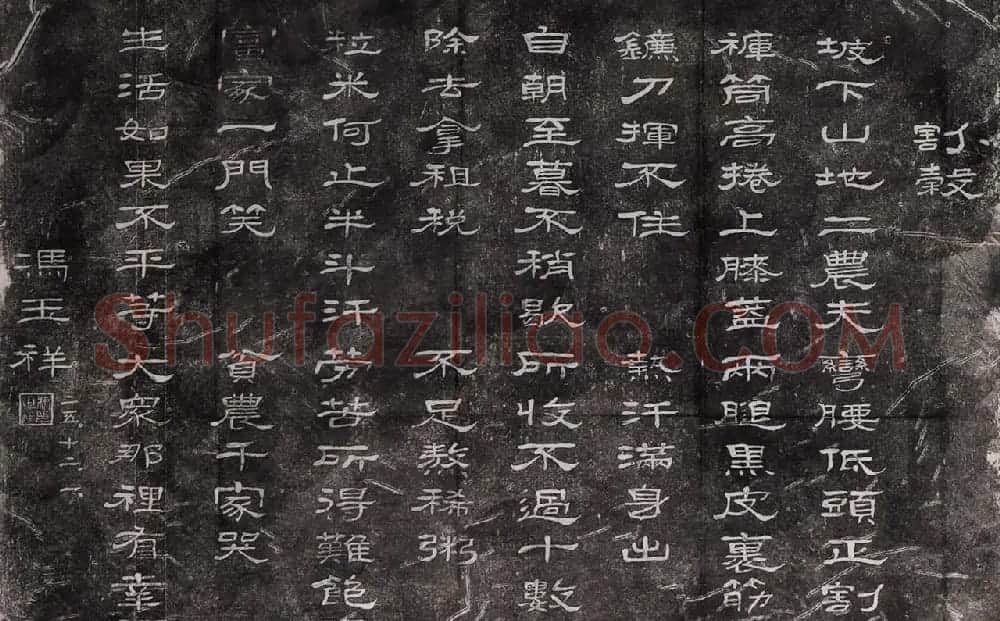 割穀
坡下山地二農夫彎腰低頭正割
褲筒高捲上膝蓋兩腿黑皮裹筋
鐮刀揮不住 熱汗滿身出
自朝至暮不稍歇所收不過十數
除去拿租稅 不足熬稀粥
粒米何止半斗汗勞苦所得難飽
富家一門笑 貧農千家哭
生活如果不平等大眾那裡有幸
馮玉祥
Shufaziliao.COM